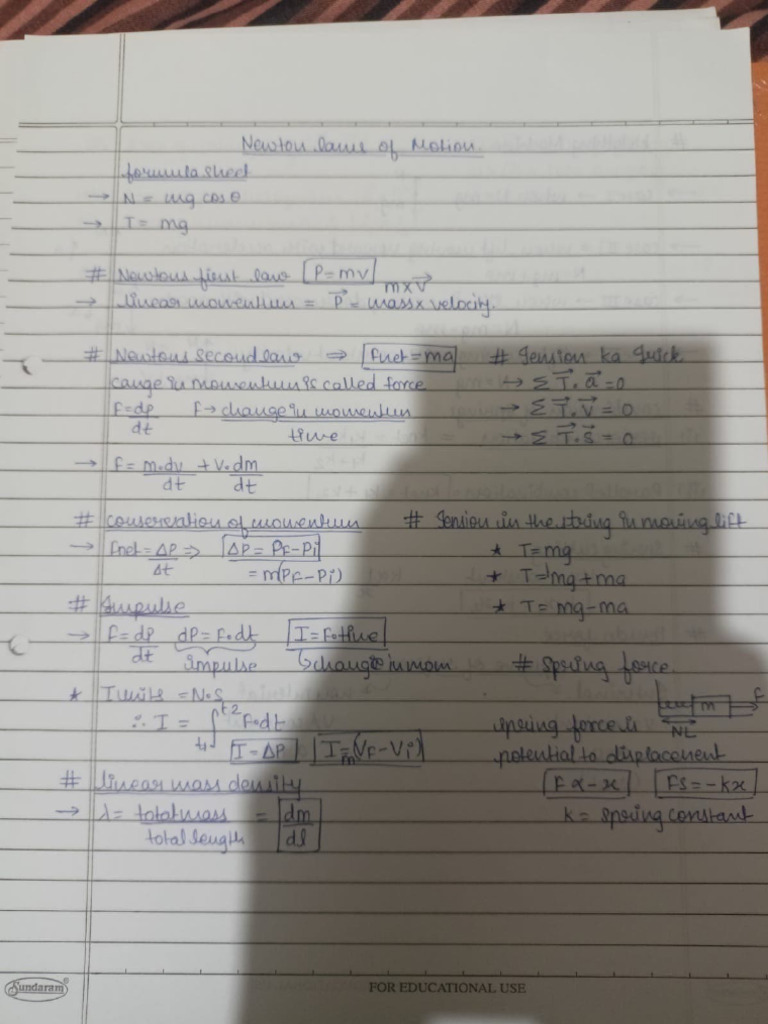 Newton laws of Motion.
formula sheet
→ N = mg cos θ
→ T = mg
# Newtons first law P = mv
m × v⃗
→ linear momentum = P⃗ = mass × velocity.
# Newtons second law ⇒ Fnet = ma
cange in momentum is called force
F = dp/dt F → change in momentum/time
→ F = m.dv/dt + v.dm/dt
# Tension ka Trick
→ Σ T⃗.a⃗ = 0
→ Σ T⃗.V⃗ = 0
→ Σ T⃗.S⃗ = 0
# conservation of momentum
→ Fnet = ΔP/Δt ⇒ ΔP = PF - Pi
= m(PF - Pi)
# Tension in the string in moving lift
★ T = mg
★ T = mg + ma
★ T = mg - ma
# Impulse
→ F = dp/dt dp = F.dt I = F.time
impulse ↳ change in mom
★ I units = N.S
∴ I = ∫t1 t2 F.dt
I = ΔP I = m(VF - Vi)
# Spring force.
m F
NL
spring force is
potential to displacement
F ∝ -x FS = -kx
k = spring constant
# linear mass density
→ λ = total mass/total length = dm/dl
Sundaram®
FOR EDUCATIONAL USE